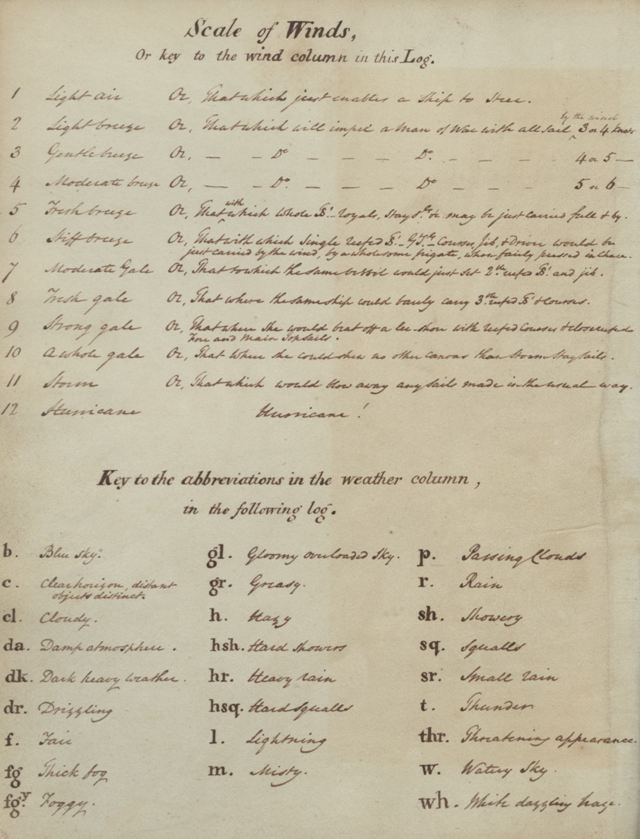 Scale of Winds,
Or key to the wind column in this Log.
1 Light air Or, That which just enables a Ship to Steer.
2 Light breeze Or, That which will impel a Man of War with all sail by the wind 3 or 4 knots
3 Gentle breeze Or, — — Do — — Do. — — — 4 or 5 —
4 Moderate breeze Or, — — Do. — — Do — — — 5 or 6 —
5 Fresh breeze Or, That with which whole Royals, Stay or may be just carried full & by.
6 Stiff breeze Or, That with which Single reefed Courses, Jib, & Driver would be
just carried by the wind, by a wholesome frigate, when fairly pressed in chace.
7 Moderate Gale Or, That to which the same vessel would just set 2nd reefed and jib.
8 Fresh gale Or, That where the same ship would barely carry 3rd reefed & Courses.
9 Strong gale Or, That where She would beat off a lee-shore with reefed Courses & close reefed
Fore and Main Topsails.
10 A whole gale Or, That where She could shew no other canvas than Storm Staysails.
11 Storm Or, That which would blow away any sails made in the usual way.
12 Hurricane Hurricane!
Key to the abbreviations in the weather column,
in the following log.
b. Blue Sky.
c. Clear horizon, distant
objects distinct.
cl. Cloudy.
da. Damp atmosphere.
dk. Dark heavy weather.
dr. Drizzling
f. Fair
fg Thick fog
fgy. Foggy.
gl. Gloomy overloaded Sky.
gr. Greasy.
h. Hazy
hsh. Hard Showers
hr. Heavy rain
hsq. Hard Squalls
l. Lightning
m. Misty.
p. Passing Clouds
r. Rain
sh. Showery
sq. Squalls
sr. Small rain
t. Thunder
thr. Threatening appearance.
w. Watery Sky.
wh. White dazzling haze.